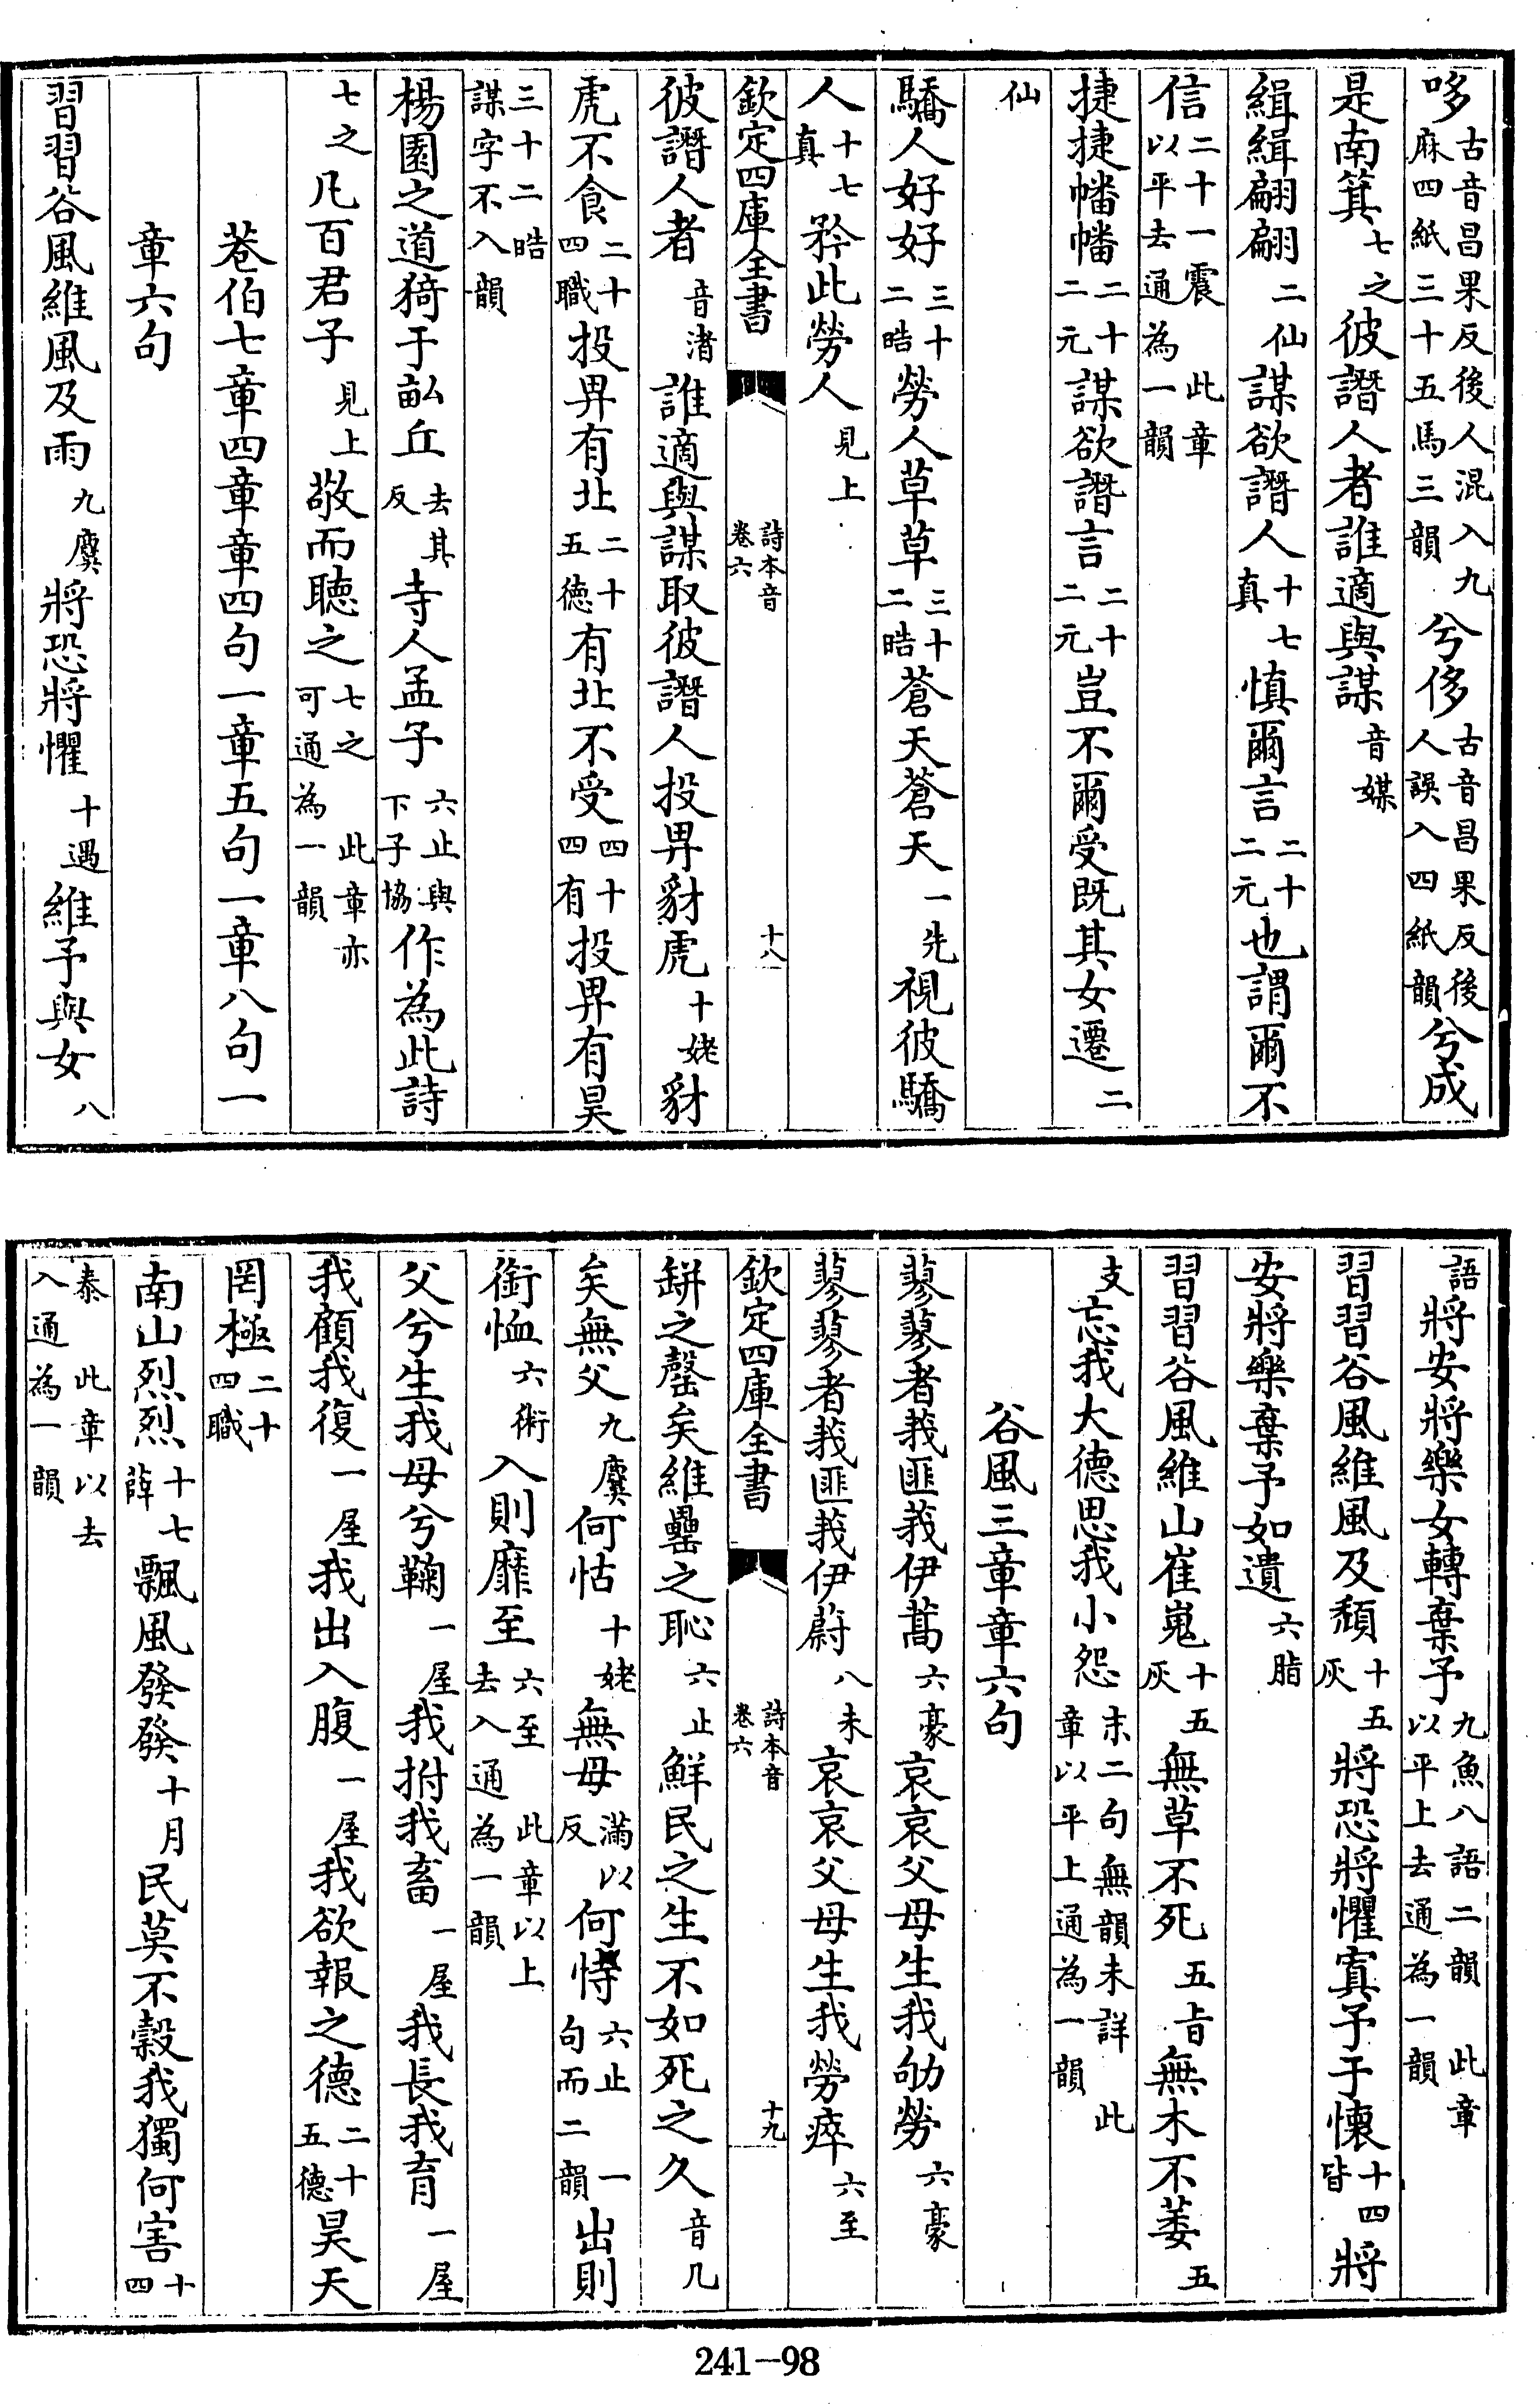 哆古音昌果反後人混入九麻四紙三十五馬三韻兮侈古音昌果反後人誤入四紙韻兮成
是南箕七之彼譖人者誰適與謀音媒
緝緝翩翩二仙謀欲譖人十七真慎爾言二十二元也謂爾不
信二十一震以平去通為一韻此章
捷捷幡幡二十二元謀欲譖言二十二元豈不爾受既其女遷二
仙
驕人好好三十二晧勞人草草三十二晧蒼天蒼天一先視彼驕
人十七真矜此勞人見上
欽定四庫全書 詩本音卷六 十八
彼譖人者音渚誰適與謀取彼譖人投畀豺虎十姥豺
虎不食二十四職投畀有北二十五德有北不受四十四有投畀有昊
三十二晧謀字不入韻
楊園之道猗于畝丘去其反寺人孟子六止與下子協作為此詩
七之凡百君子見上敬而聽之七之可通為一韻此章亦
巷伯七章四章章四句一章五句一章八句一
章六句
習習谷風維風及雨九麌將恐將懼十遇維予與女八
語將安將樂女轉棄予九魚八語二韻此章以平上去通為一韻
習習谷風維風及頹十五灰將恐將懼寘予于懷十四皆將
安將樂棄予如遺六脂
習習谷風維山崔嵬十五灰無草不死五旨無木不萎五
支忘我大德思我小怨末二句無韻未詳此章以平上通為一韻
谷風三章章六句
蓼蓼者莪匪莪伊蒿六豪哀哀父母生我劬勞六豪
蓼蓼者莪匪莪伊蔚八未哀哀父母生我勞瘁六至
欽定四庫全書 詩本音卷六 十九
缾之罄矣維罍之恥六止鮮民之生不如死之久音几
矣無父九麌何怙十姥無母滿以反何恃六止一句而二韻出則
銜恤六術入則靡至六至此章以上去入通為一韻
父兮生我母兮鞠一屋我拊我畜一屋我長我育一屋
我顧我復一屋我出入腹一屋我欲報之德二十五德昊天
罔極二十四職
南山烈烈十七薛飄風發發十月民莫不穀我獨何害十四
泰此章以去入通為一韻
241-98